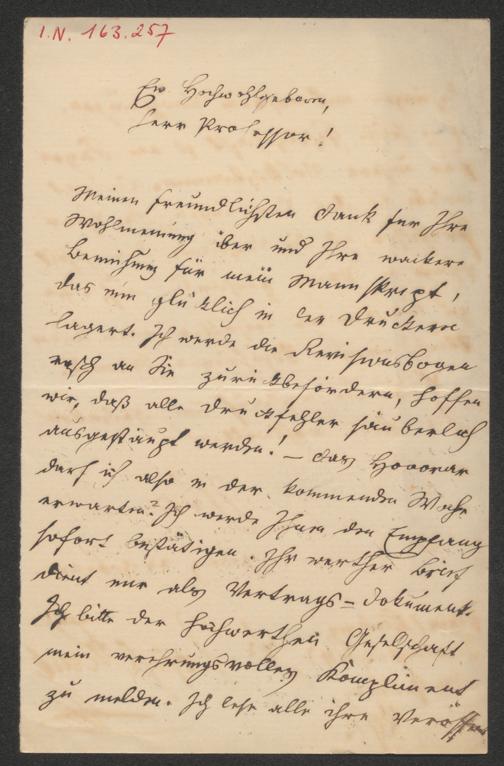 I.N. 163.257
Ew Hochwohlgeboren,
Herr Professor!
Meinen freundlichsten Dank für Ihre
Wohlmeinung über und Ihre wackere
Bemühung für mein Manuskript,
das nun glücklich in der Druckerei
lagert. Ich werde die Revisionsbogen
rasch an Sie zurückbefördern, hoffen
wir, daß alle Druckfehler säuberlich
ausgestäupt werden! – Das Honorar
darf ich also in der kommenden Woche
erwarten? Ich werde Ihnen den Empfang
sofort bestätigen. Ihr werther Brief
dient mir als Vertrags-Dokument.
Ich bitte der hochwerthen Gesellschaft
mein verehrungsvolles Kompliment
zu melden. Ich lese alle ihre